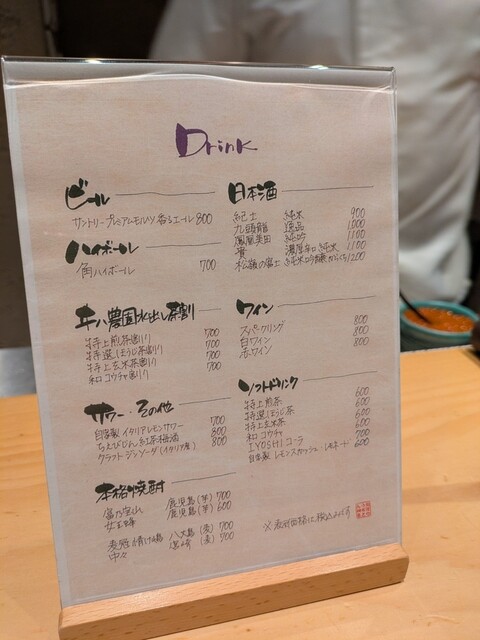 Drink
ビール
サントリープレミアムモルツ 香るエール 800
ハイボール
角ハイボール 700
農園水出し茶割
特上煎茶割り 700
特選ほうじ茶割り 700
特上玄米茶割り 700
和コウチャ割り 700
サワー・その他
自家製イタリアレモンサワー 700
ちえびじん紅茶梅酒 800
クラフトジンソーダ(イタリア産) 800
本格焼酎
富乃宝山 鹿児島(芋) 700
女王蜂 鹿児島(芋) 600
麦冠 情け嶋 八丈島(麦) 700
中々 宮崎(麦) 700
日本酒
紀土 純米 900
九頭龍 逸品 1000
鳳凰美田 純吟 1100
貴 濃醇辛口純米 1100
松嶺の富士 純米吟醸からくち 1200
ワイン
スパークリング 800
白ワイン 800
赤ワイン 800
ソフトドリンク
特上煎茶 600
特選ほうじ茶 600
特上玄米茶 600
和コウチャ 600
IYOSHIコーラ 700
自家製 レモンスカッシュ・レモネード 600
※表示価格は税込みです